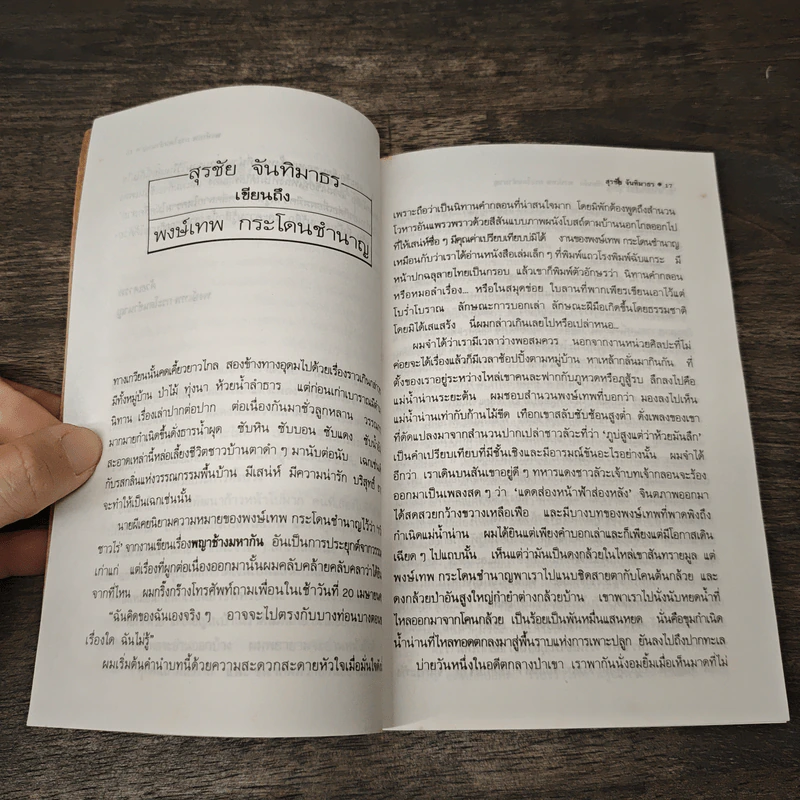 สุรชัย จันทิมาธร
เขียนถึง
พงษ์เทพ กระโดนชำนาญ
ทางเกวียนนั้นคดเคี้ยวยาวไกล สองข้างทางอุดมไปด้วยเรื่องราวเก่า
มีทั้งหมู่บ้าน ป่าไม้ ทุ่งนา ห้วยน้ำลำธาร แต่ก่อนเก่าเบาราณ
นิทาน เรื่องเล่าปากต่อปาก ต่อเนื่องกันมาชั่วลูกหลาน
มากมายกำเนิดขึ้นดั่งธารน้ำผุด ซับหิน ซับบอน ซับแดง
สะอาดเหล่านี้หล่อเลี้ยงชีวิตชาวบ้านตาดำ ๆ มานับต่อนับ เฉกเช่น
กับรสกลิ่นแห่งวรรณกรรมพื้นบ้าน มีเสน่ห์ มีความน่ารัก บริสุทธิ์
จะทำให้เป็นเฉกเช่นนั้น
นายผีเคยนิยามความหมายของพงษ์เทพ กระโดนชำนาญไว้ว่า
ชาวไร่' จากงานเขียนเรื่องพญาช้างมหากัน อันเป็นการประยุกต์จาก
เก่าแก่ แต่เรื่องที่ผูกต่อเนื่องออกมานั้นผมคลับคล้ายคลับคลาว่าได้
จากที่ไหน ผมกริ๊งกร๊างโทรศัพท์ถามเพื่อนในเช้าวันที่ 20 เมษายน
“ฉันคิดของฉันเองจริง ๆ อาจจะไปตรงกับบางท่อนบางตอน
เรื่องใด ฉันไม่รู้”
ผมเริ่มต้นคำนำบทนี้ด้วยความสะดวกสะดายหัวใจเมื่อมั่นใจ
สุรชัย จันทิมาธร • 17
เพราะถือว่าเป็นนิทานคำกลอนที่น่าสนใจมาก โดยมิพักต้องพูดถึงสำนวน
โวหารอันแพรวพราวด้วยสีสันแบบภาพผนังโบสถ์ตามบ้านนอกไกลออกไป
ที่ให้เสน่ห์ซื่อ ๆ มีคุณค่าเปรียบเทียบบ่มิได้ งานของพงษ์เทพ กระโดนชำนาญ
เหมือนกับว่าเราได้อ่านหนังสือเล่มเล็ก ๆ ที่พิมพ์แถวโรงพิมพ์ฉับแกระ มี
หน้าปกฉลุลายไทยเป็นกรอบ แล้วเขาก็พิมพ์ตัวอักษรว่า นิทานคำกลอน
หรือหมอลำเรื่อง... หรือในสมุดข่อย ใบลานที่พากเพียรเขียนเอาไว้แต่
โบร่ำโบราณ ลักษณะการบอกเล่า ลักษณะฝีมือเกิดขึ้นโดยธรรมชาติ
โดยมิได้เสแสร้ง นี่ผมกล่าวเกินเลยไปหรือเปล่าหนอ...
ผมจำได้ว่าเรามีเวลาว่างพอสมควร นอกจากงานหน่วยศิลปะที่ไม่
ค่อยจะได้เรื่องแล้วก็มีเวลาช้อปปิ้งตามหมู่บ้าน หาเหล้ากลั่นมากินกัน ที่
ตั้งของเราอยู่ระหว่างไหล่เขาคนละฟากกับภูหวดหรือภูสู้รบ ลึกลงไปคือ
แม่น้ำน่านระยะต้น ผมชอบสำนวนพงษ์เทพที่บอกว่า มองลงไปเห็น
แม่น้ำน่านเท่ากับก้านไม้ขีด เทือกเขาสลับซับซ้อนสูงต่ำ ดั่งเพลงของเขา
ที่ดัดแปลงมาจากสำนวนปากเปล่าชาวลัวะที่ว่า ‘ภูบ่สูงแต่ว่าห้วยมันลึก’
เป็นคำเปรียบเทียบที่มีชั้นเชิงและมีอารมณ์ขันอะไรอย่างนั้น ผมจำได้
อีกว่า เราเดินบนสันเขาอยู่ดี ๆ ทหารแดงชาวลัวะเจ้าบทเจ้ากลอนจะร้อง
ออกมาเป็นเพลงสด ๆ ว่า ‘แดดส่องหน้าฟ้าส่องหลัง’ จินตภาพออกมา
ได้สดสวยกว้างขวางเหลือเฟือ และมีบางบทของพงษ์เทพที่พาดพิงถึง
กำเนิดแม่น้ำน่าน ผมได้ยินแต่เพียงคำบอกเล่าและก็เพียงแต่มีโอกาสเดิน
เฉียดๆ ไปแถบนั้น เห็นแต่ว่ามันเป็นดงกล้วยในไหล่เขาสันทรายมูล แต่
พงษ์เทพ กระโดนชำนาญพาเราไปแนบชิดสายตากับโคนต้นกล้วย และ
ดงกล้วยป่าอันสูงใหญ่กำยำต่างกล้วยบ้าน เขาพาเราไปนั่งนับหยดน้ำที่
ไหลออกมาจากโคนกล้วย เป็นร้อยเป็นพันหมื่นแสนหยด นั่นคือขุมกำเนิด
น้ำน่านที่ไหลทอดตกลงมาสู่พื้นราบแห่งการเพาะปลูก ยันลงไปถึงปากทะเล
บ่ายวันหนึ่งในอดีตกลางป่าเขา เราพากันนั่งอมยิ้มเมื่อเห็นมาดที่ไม่